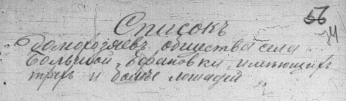 56
74
Списокъ
домохозяевъ общества села
Большой Верановки, имеющихъ
трёхъ и более лошадей